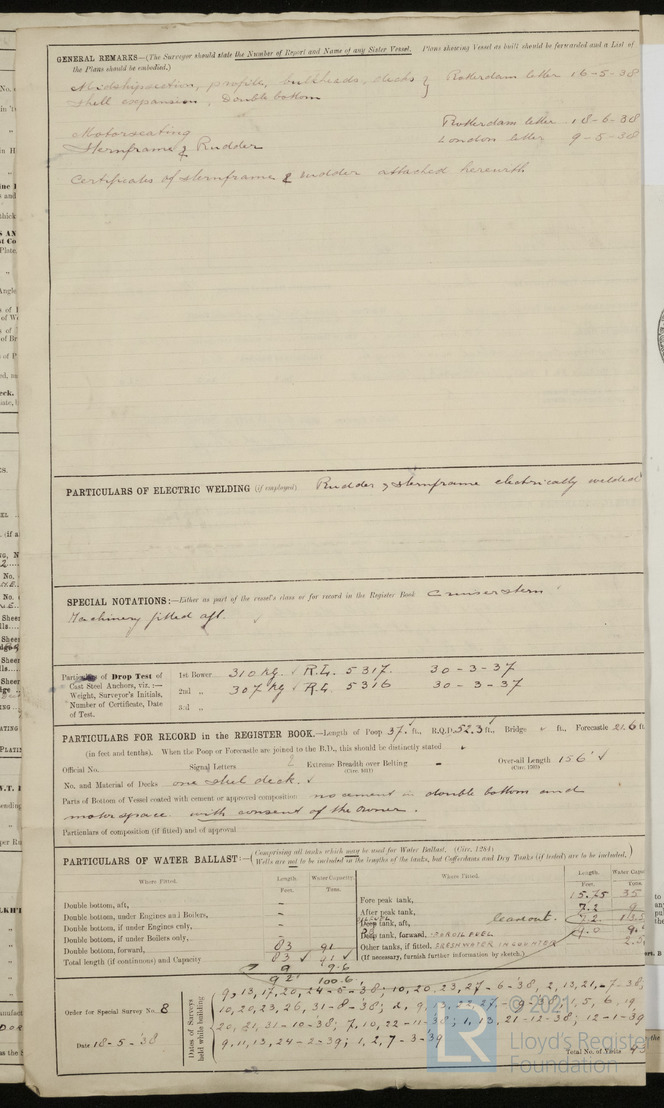 GENERAL REMARKS—(The Surveyor should state the Number of Report and Name of any Sister Vessel. Plans showing Vessel as built should be forwarded and a List of
the Plans should be embodied.)
Midshipsection, profile, bulkheads, decks } Rotterdam letter 16-5-38
Shell expansion, Double bottom
Rotterdam letter 18-6-38
Motorseating
London letter 9-5-38
Sternframe & Rudder
Certificates of sternframe & rudder attached herewith
PARTICULARS OF ELECTRIC WELDING (if employed) Rudder & sternframe electrically welded
SPECIAL NOTATIONS:—Either as part of the vessel's class or for record in the Register Book Cruiserstern
Machinery fitted aft.
Particulars of Drop Test of 1st Bower 310 kg. R.L. 5317. 30-3-37
Cast Steel Anchors, viz.:— 2nd „ 307 kg R.L. 5316 30-3-37
Weight, Surveyor's Initials,
Number of Certificate, Date 3rd „
of Test.
PARTICULARS FOR RECORD in the REGISTER BOOK.—Length of Poop 37. ft., R.Q.D. 52.3 ft., Bridge ft., Forecastle 21.6 ft
(in feet and tenths). When the Poop or Forecastle are joined to the B.D., this should be distinctly stated
Official No. Signal Letters Extreme Breadth over Belting - Over-all Length 156'
(Circ. 1611) (Circ. 1703)
No. and Material of Decks one steel deck.
Parts of Bottom of Vessel coated with cement or approved composition no cement in double bottom and
motorspace with consent of the owner.
Particulars of composition (if fitted) and of approval
PARTICULARS OF WATER BALLAST:—(Comprising all tanks which may be used for Water Ballast. (Circ. 1284)
Wells are not to be included in the lengths of the tanks, but Cofferdams and Dry Tanks (if tested) are to be included.)
Where Fitted. Length. Water Capacity. Where Fitted. Length. Water Capac
Feet. Tons. Feet. Tons.
Double bottom, aft, - Fore peak tank, 15.75 35
Double bottom, under Engines and Boilers, - After peak tank, 7.2 9
Double bottom, if under Engines only, - Deep tank, aft, leave out. 7.2
Double bottom, if under Boilers only, - Deep tank, forward,
Double bottom, forward, 83 91 Other tanks, if fitted, FRESHWATER IN COUNTER
Total length (if continuous) and Capacity 83 91 (If necessary, furnish further information by sketch.)
9 9.6
92 100.6
Order for Special Survey No. 8
Date 18-5-'38
Dates of Surveys held while building
9, 13, 17, 20, 24-5-38; 10, 20, 23, 27-6-38, 2, 13, 21,-7-38,
10, 20, 23, 26, 31-8-38; 2, 9, 13, 22, 27-9-38; 1, 5, 6, 19
20, 21, 31-10-38; 7, 10, 22-11-38; 1, 13, 21-12-38; 12-1-39
9, 11, 13, 24-2-39; 1, 2, 7-3-39
Total No. of Visits
© 2021
LR
Lloyd's Register
Foundation